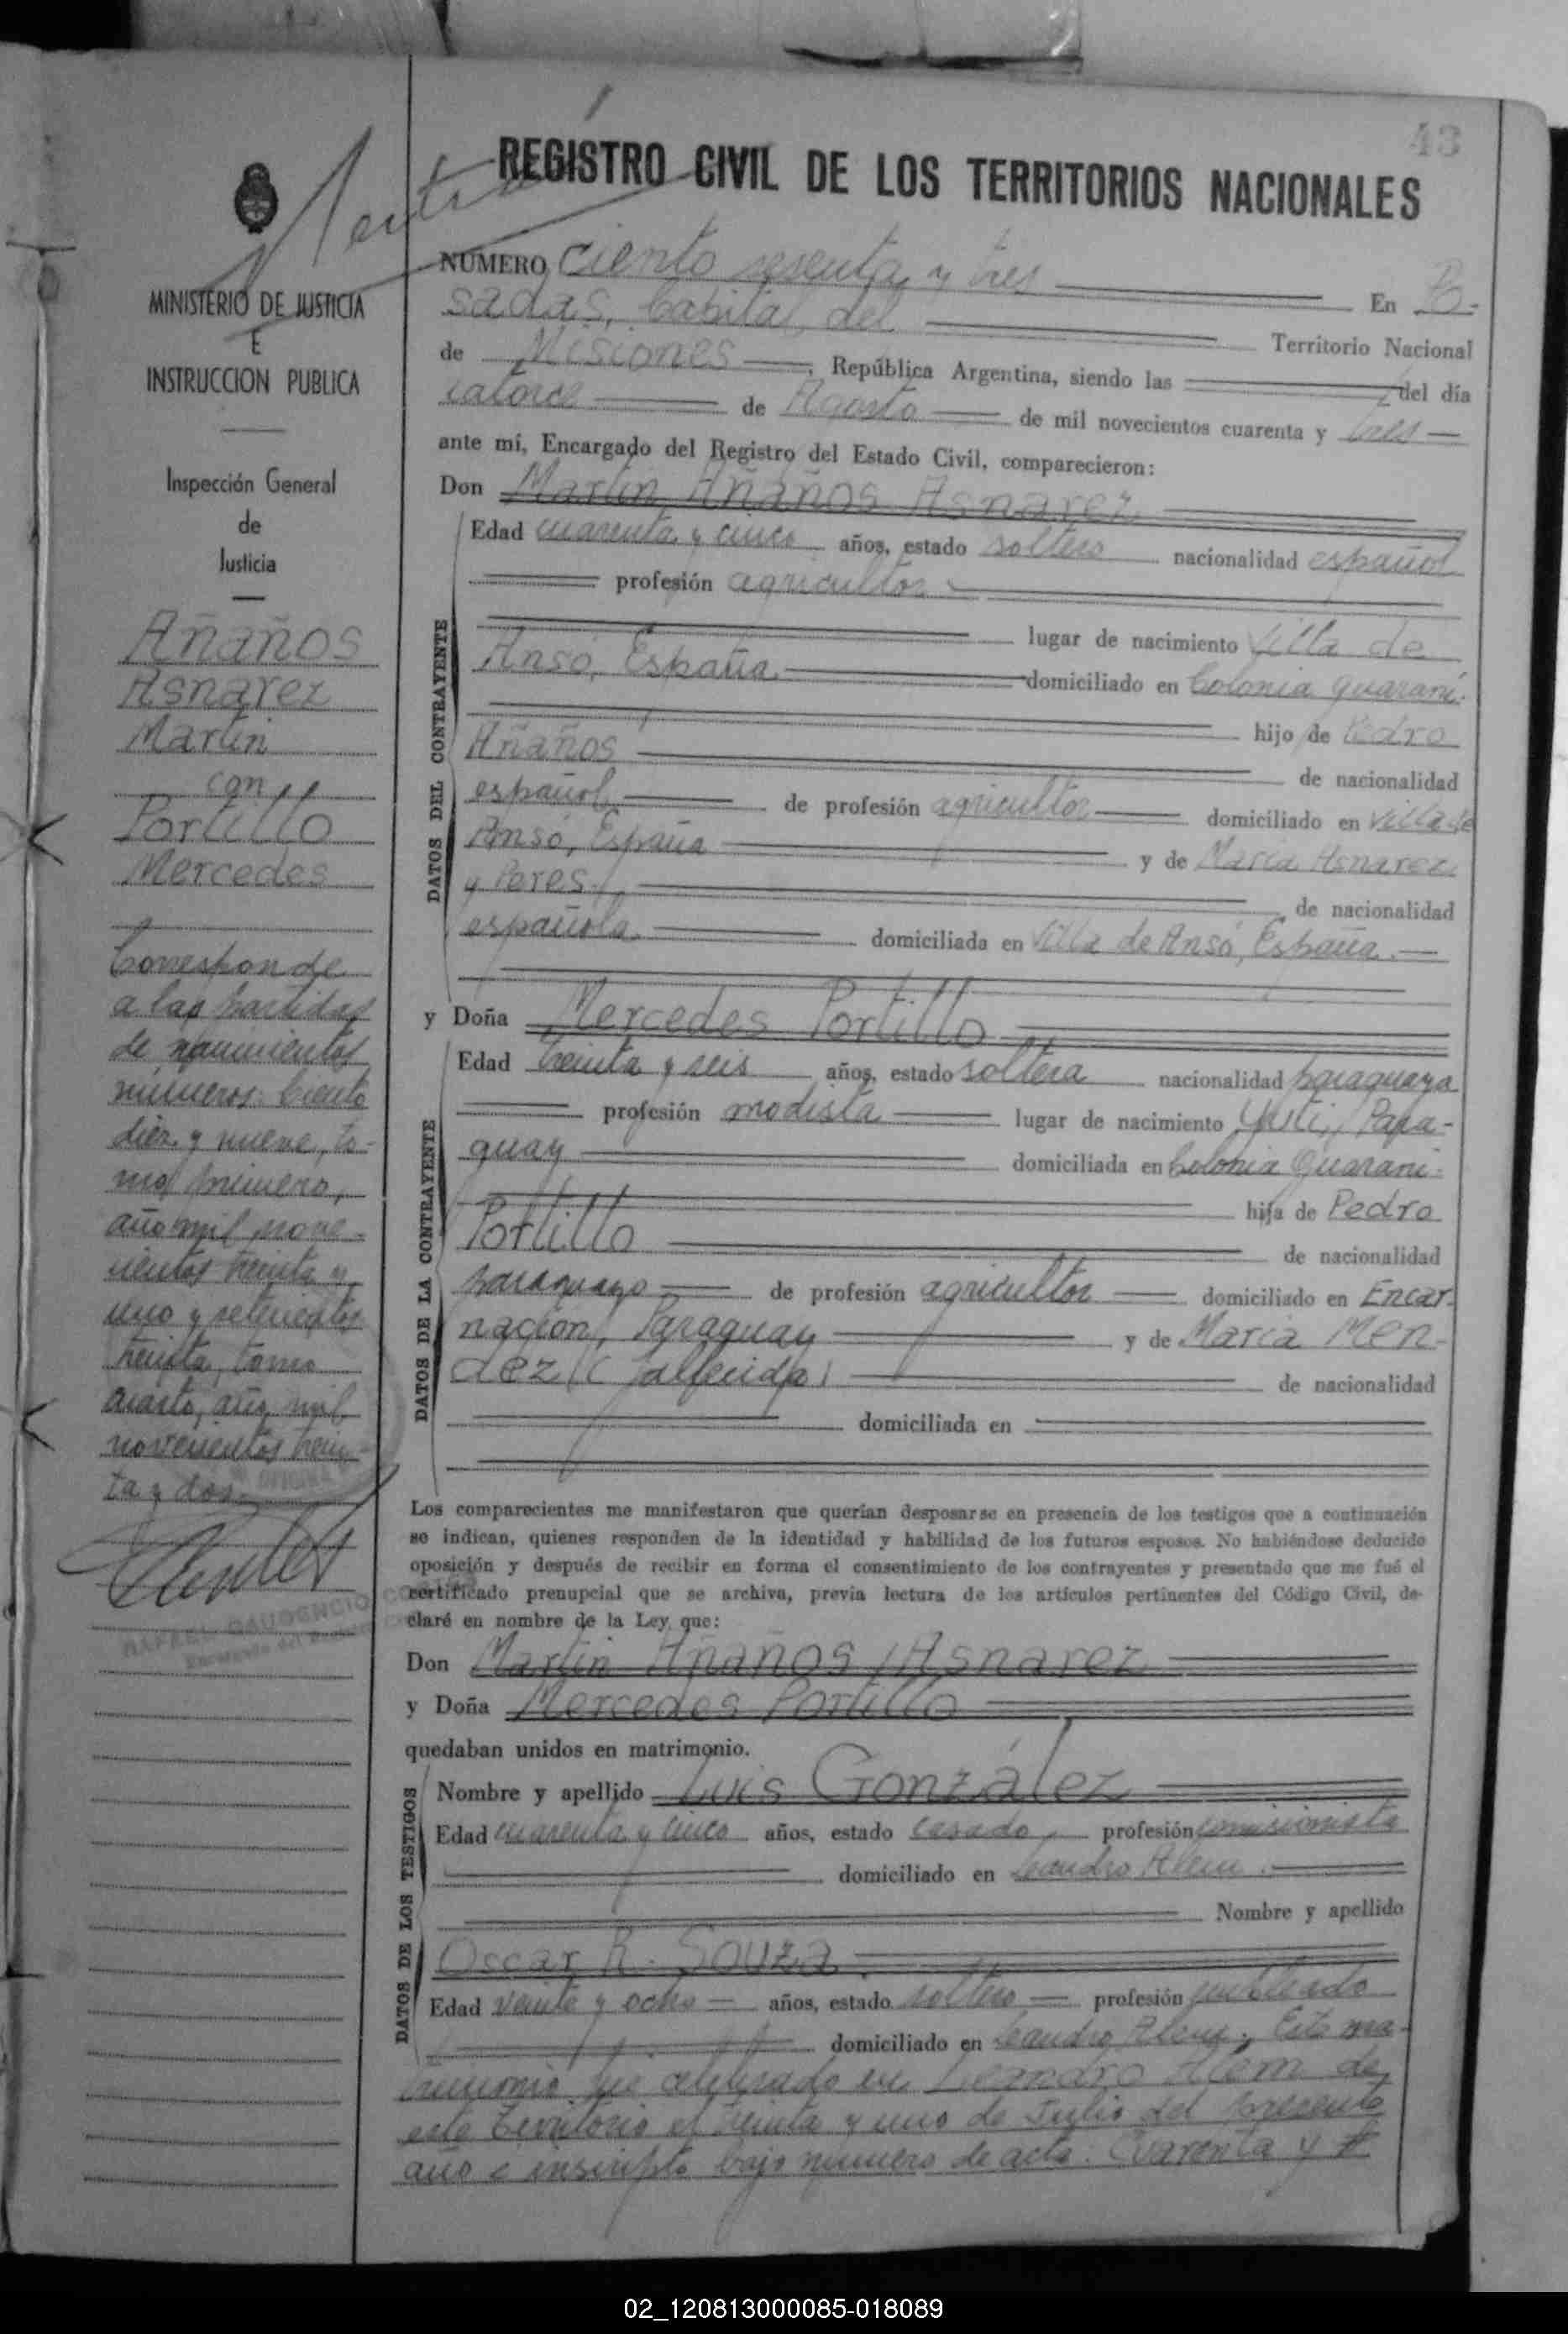 43
REGISTRO CIVIL DE LOS TERRITORIOS NACIONALES
MINISTERIO DE JUSTICIA
E
INSTRUCCION PUBLICA
Inspección General
de
Justicia
Añaños
Asnarez
Martin
con
Portillo
Mercedes
Corresponde
a las partidas
de nacimientos
números: Ciento
diez y nueve, to-
mo primero,
año mil nove-
cientos treinta y
uno y setecientos
treinta, tomo
cuarto, año mil
novecientos trein-
ta y dos.
RAFAEL GAUDENCIO
Encargado del
NUMERO ciento sesenta y tres En Po-
sadas, Capital del Territorio Nacional
de Misiones, República Argentina, siendo las del día
catorce de Agosto de mil novecientos cuarenta y tres
ante mí, Encargado del Registro del Estado Civil, comparecieron:
Don Martin Añaños Asnarez
DATOS DEL CONTRAYENTE
Edad cuarenta y cinco años, estado soltero nacionalidad español
profesión agricultor
lugar de nacimiento Villa de
Ansó, España domiciliado en Colonia guaraní.
hijo de Pedro
Añaños de nacionalidad
español de profesión agricultor domiciliado en Villa de
Ansó, España y de María Asnarez
y Peres. de nacionalidad
española domiciliada en Villa de Ansó, España.
y Doña Mercedes Portillo
DATOS DE LA CONTRAYENTE
Edad treinta y seis años, estado soltera nacionalidad paraguaya
profesión modista lugar de nacimiento Yuti, Para-
guay domiciliada en Colonia Guaraní
hija de Pedro
Portillo de nacionalidad
paraguayo de profesión agricultor domiciliado en Encar-
nación, Paraguay y de María Men-
dez (fallecida) de nacionalidad
domiciliada en
Los comparecientes me manifestaron que querían desposarse en presencia de los testigos que a continuación
se indican, quienes responden de la identidad y habilidad de los futuros esposos. No habiéndose deducido
oposición y después de recibir en forma el consentimiento de los contrayentes y presentado que me fué el
certificado prenupcial que se archiva, previa lectura de los artículos pertinentes del Código Civil, de-
claré en nombre de la Ley, que:
Don Martin Añaños Asnarez
y Doña Mercedes Portillo
quedaban unidos en matrimonio.
DATOS DE LOS TESTIGOS
Nombre y apellido Luis González
Edad cuarenta y cinco años, estado casado, profesión comisionista
domiciliado en Leandro Alem.
Nombre y apellido
Oscar R. Souza
Edad veinte y ocho años, estado soltero profesión empleado
domiciliado en Leandro Alem. Este ma-
trimonio fue celebrado en Leandro Alem de
este Territorio el treinta y uno de Julio del presente
año e inscripto bajo número de acta: Cuarenta y
02_120813000085-018089